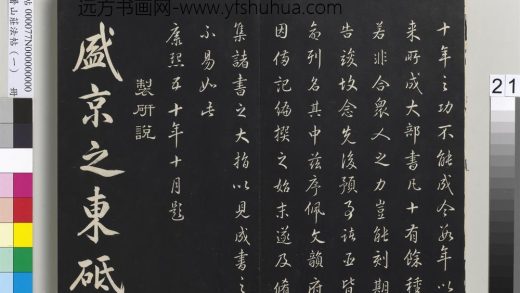 远方书画网-www.yfshuhua.com
十年之功不能成今數年以
來所成大部書凡十有餘種
若非合衆人之力豈能刻期
告竣故念先後預事諸臣皆
命列名其中茲序佩文韻府
因備記編撰之始末遂及脩
集諸書之大指以見成書之
不易如此
康熙五十年十月題
製研說
盛京之東砥
帖 000077N00000000
山莊法帖(一) 冊
21